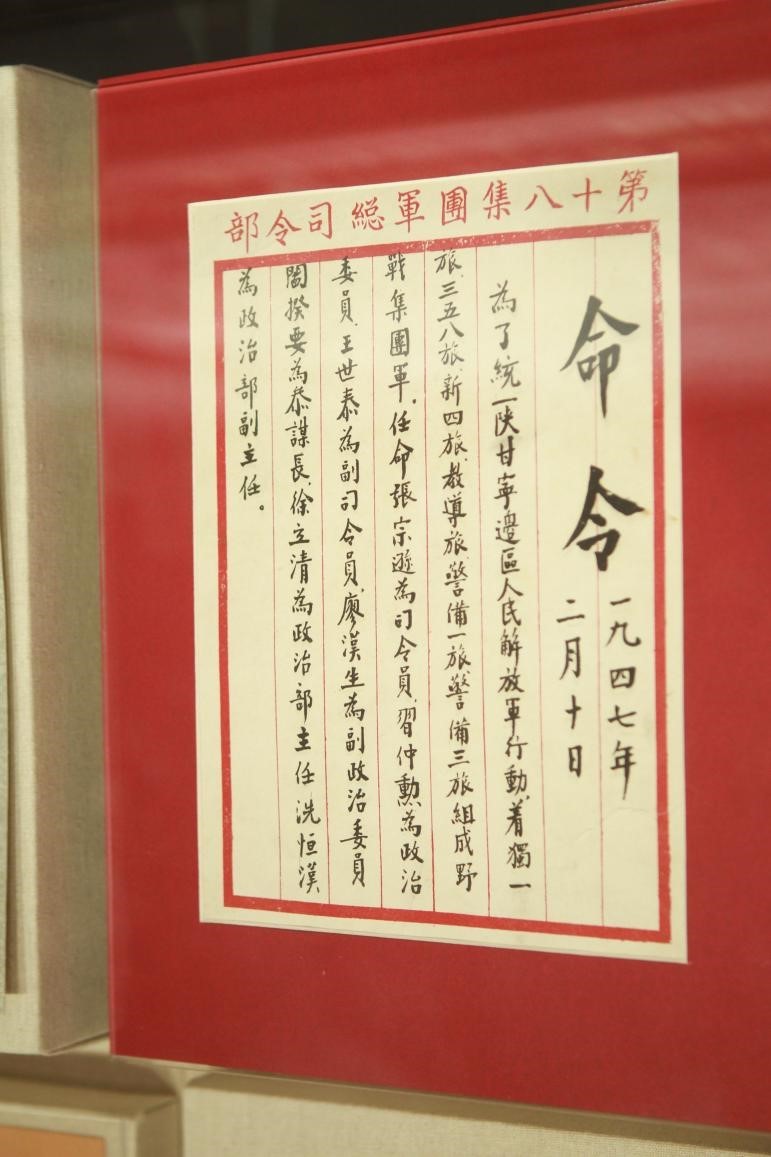 第十八集團軍總司令部
命令
一九四七年
二月十日
為了統一陝甘寧邊區人民解放軍行動,着獨一
旅、三五八旅、新四旅、教導旅、警備一旅、警備三旅組成野
戰集團軍。任命張宗遜為司令員,習仲勳為政治
委員,王世泰為副司令員,廖漢生為副政治委員
閻揆要為叅謀長,徐立清為政治部主任冼恒漢
為政治部副主任。